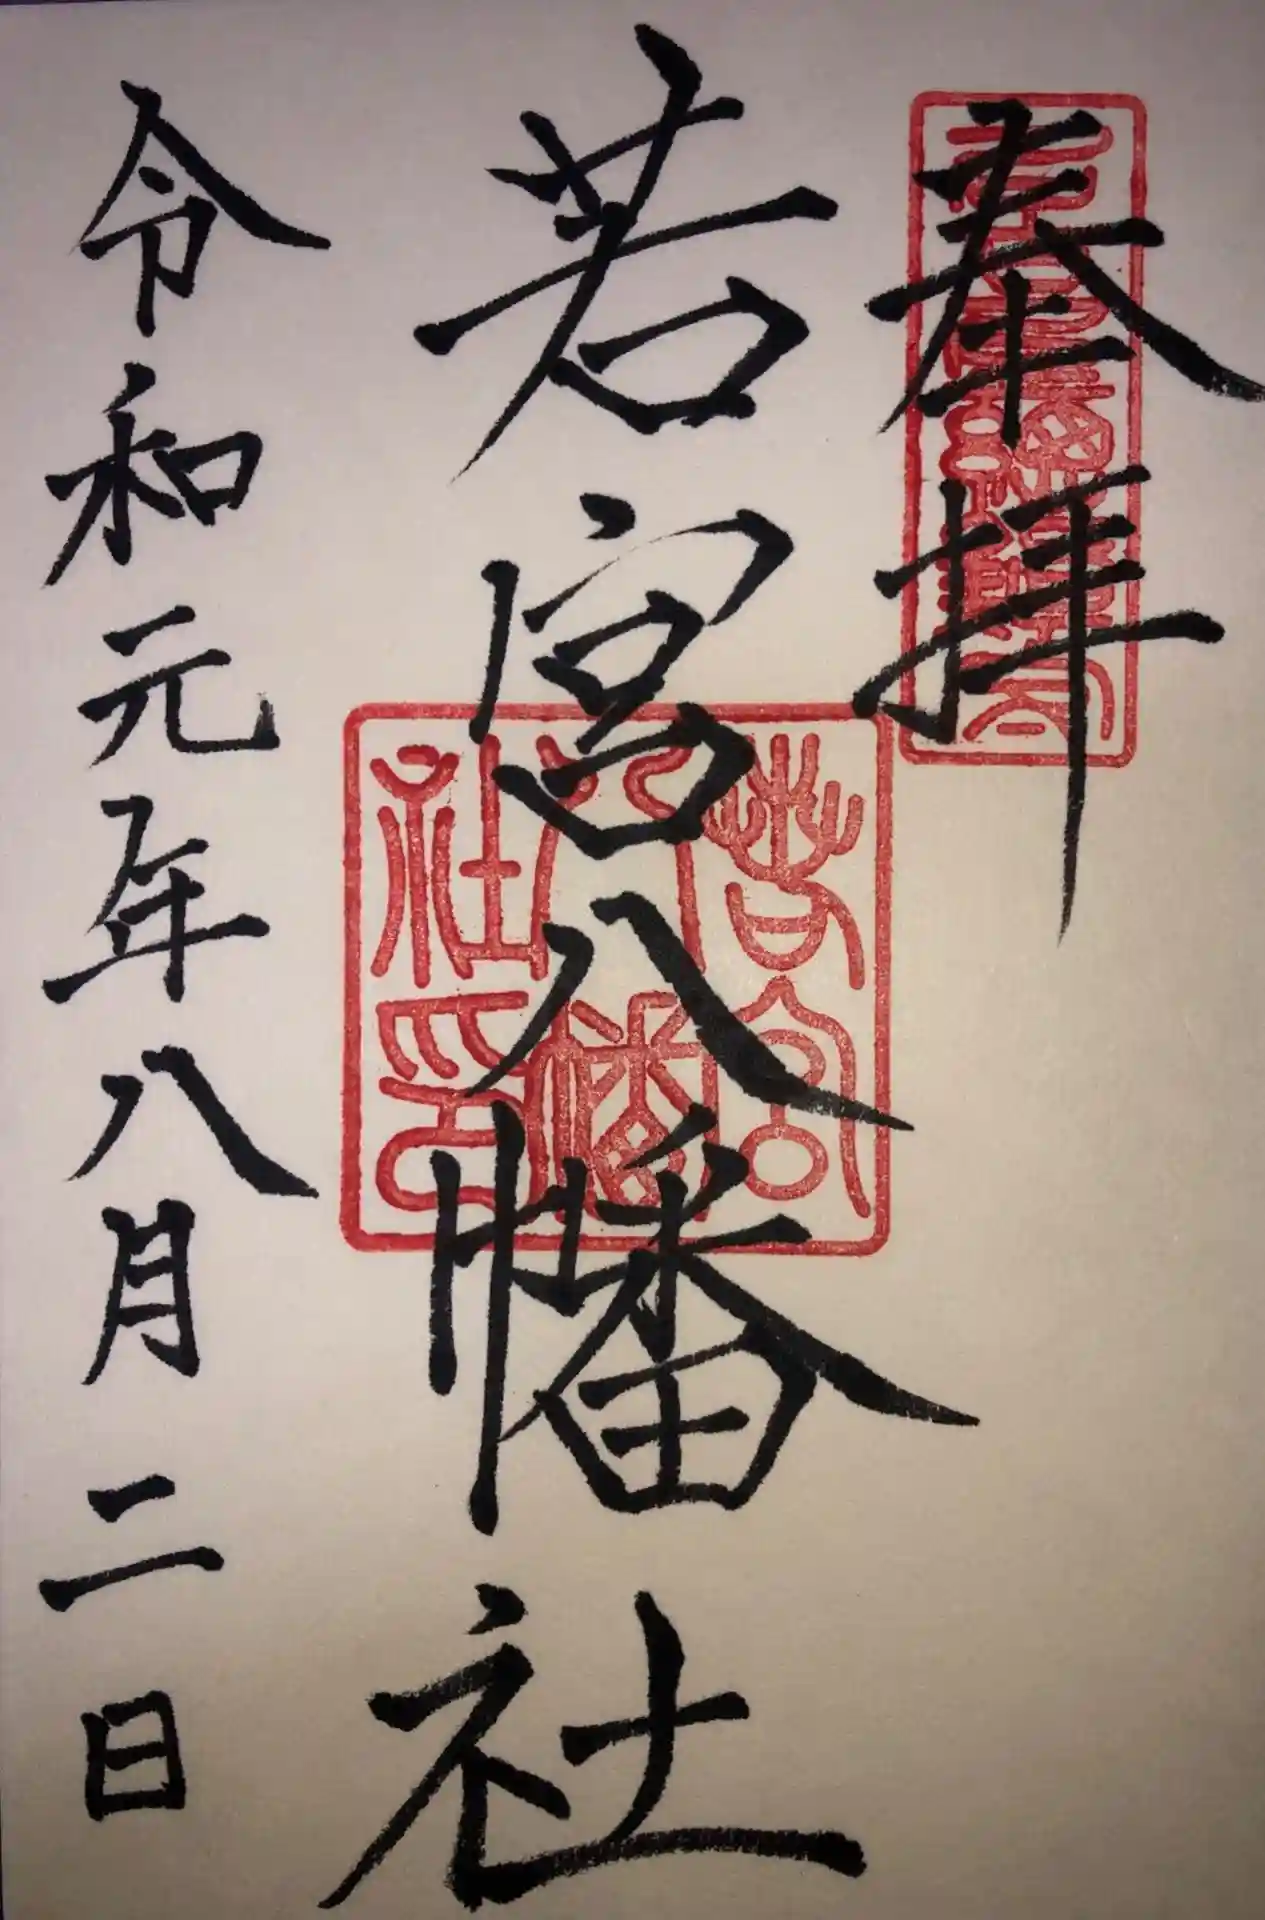 奉拝
若宮八幡社
令和元年八月二日
若宮
八幡
社印